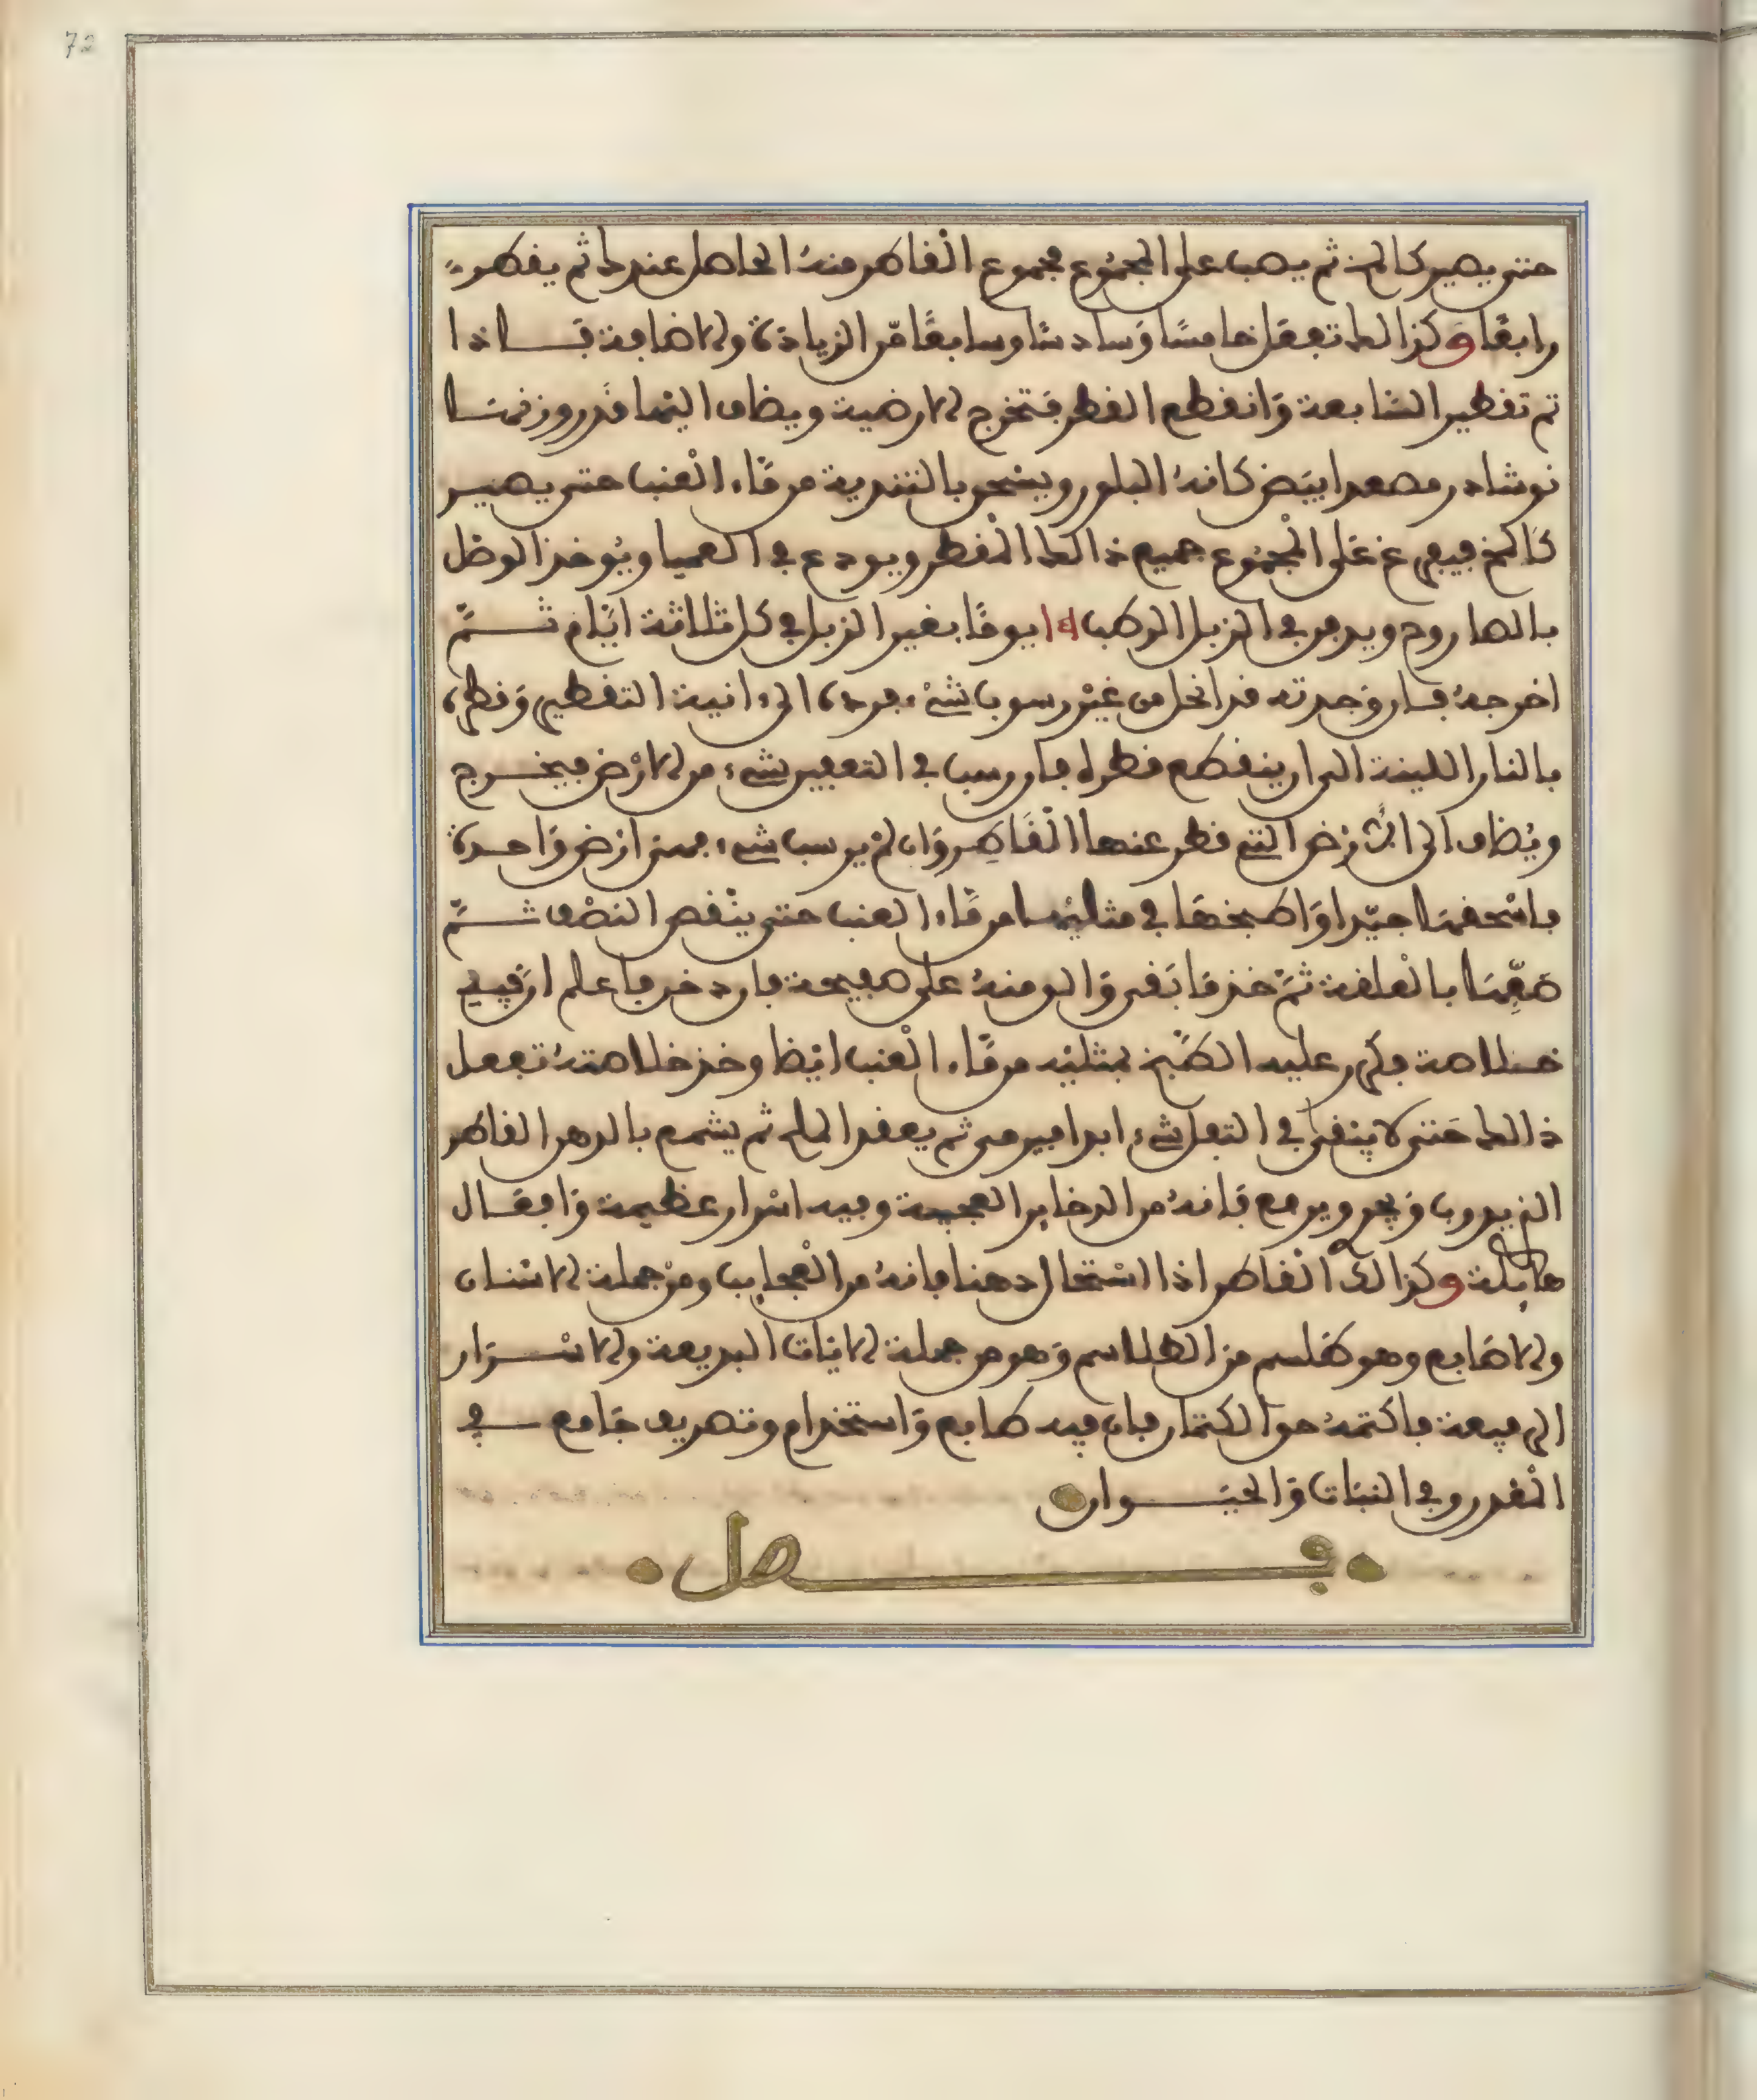 72
حتى يصير كالمخ ثم يصب على المجموع مجموع القاطر منه الحاصل عندك ثم يقطره
رابعا وكذالك تفعل خامسا وسادسا وسابعا من الزيادة والاضافة فاذا
تم تقطير السابعة وانقطع القطر فتخرج الارضية ويضاف اليها قدر وزنها
نوشادر مصعد ابيض كانه البلور ويسحق بالتندية من ماء العنب حتى يصير
كالمخ فيفرغ على المجموع جميع ذالك المقطر ويودع في العميا ويوخذ الوصل
بالصاروج ويدفن في الزبل الرطب يوما بغير الزبل في كل ثلاثة ايام ثم
اخرجه فان وجدته قد انحل من غير رسوب شيء فرده الى انية التقطير وقطره
بالنار اللينة الى ان ينقطع قطره فان رسب في التعفين شيء من الارض فيخرج
ويضاف الى الارض التي قطر عنها القاطر وان لم يرسب شيء فهي ارض واحدة
فاسحقها جيدا واطبخها في مثليها من ماء العنب حتى ينقص النصف ثم
صفها بالعلقة ثم خذ ما بقي والق منه على صفيحة فان دخن فاعلم ان فيه
خلاصة فكرر عليه الطبخ بمثليه من ماء العنب ايضا وخذ خلاصته تفعل
ذالك حتى لا يبقى في الثفل شيء ابدا فيرمى ثم يعقد الملح ثم يشمع بالدهن القاطر
الذي يدوب ويجري ويرفع فانه من الدخاير العجيبة وفيه اسرار عظيمة وافعال
هايلة وكذالك القاطر اذا استحال دهنا فانه من العجايب ومن جملة الاشنان
والاصابع وهو طلسم من الطلاسم وهو من جملة الايات البديعة والاسرار
الرفيعة فاكتمه حق الكتمان فان فيه طابع واستخدام وتصريف جامع في
المعدن وفي النبات والحيوان
فصل